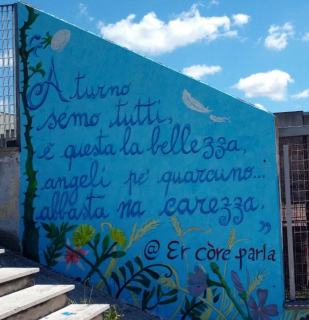 "A turno
semo tutti,
è questa la bellezza,
angeli pe' quarcuno...
abbasta na carezza."
@ Er còre parla